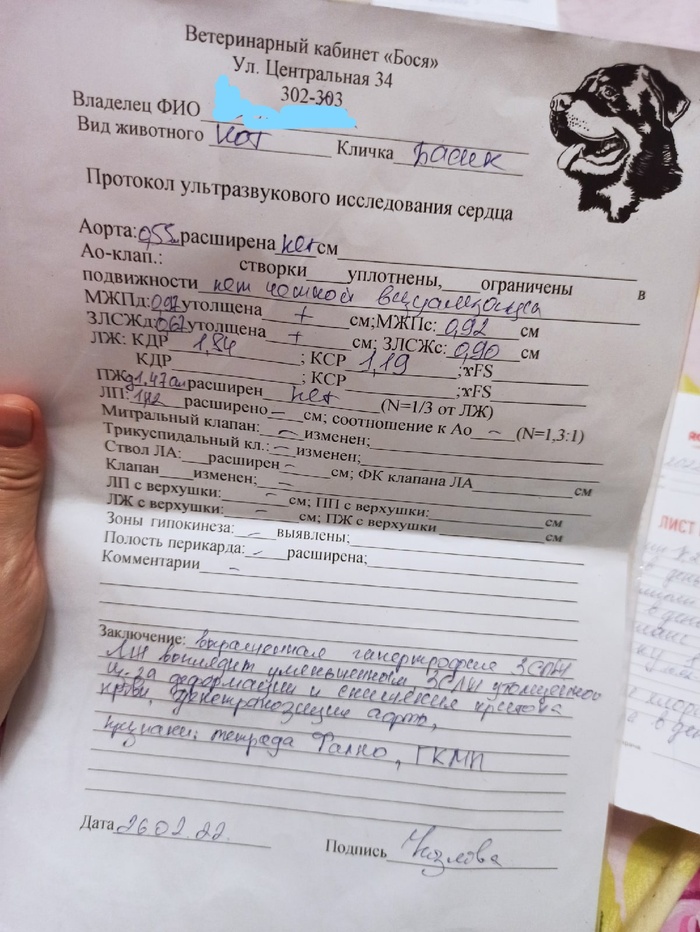 Ветеринарный кабинет «Бося»
Ул. Центральная 34
302-303
Владелец ФИО
Вид животного кот Кличка Басик
Протокол ультразвукового исследования сердца
Аорта: 0,55 расширена нет см
Ао-клап.: створки уплотнены, ограничены в
подвижности нет четкой визуализации
МЖПд: 0,97 утолщена + см; МЖПс: 0,92 см
ЗЛСЖд: 0,67 утолщена + см; ЗЛСЖс: 0,90 см
ЛЖ: КДР 1,84 ; КСР 1,19 ; xFS
КДР ; КСР ; xFS
ПЖд 1,47см расширен нет (N=1/3 от ЛЖ)
ЛП: расширено – см; соотношение к Ао – (N=1,3:1)
Митральный клапан: – изменен;
Трикуспидальный кл.: – изменен;
Ствол ЛА: расширен – см; ФК клапана ЛА см
Клапан изменен; –
ЛП с верхушки: – см; ПП с верхушки: см
ЛЖ с верхушки: – см; ПЖ с верхушки см
Зоны гипокинеза: – выявлены;
Полость перикарда: – расширена;
Комментарии –
Заключение: выраженная гипертрофия ЗСЛЖ
выглядит уменьшенным ЗСЛЖ утолщенного
из-за деформации и снижения притока
крови, декстрапозиция аорты,
признаки: тетрада Фалло, ГКМП
Дата 26.02.22. Подпись
ЛИСТ